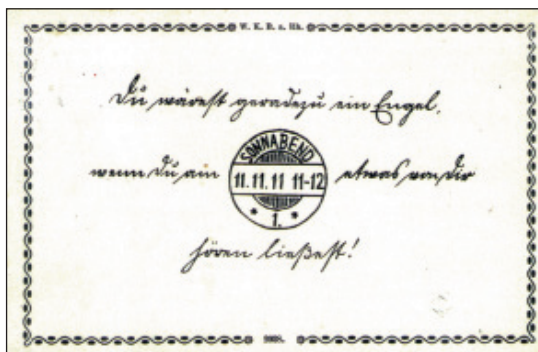 W. K. B. a. Hh.
Du wärest geradezu ein Engel,
wenn Du am
SONNABEND
11.11.11 11-12
* 1. *
etwas von Dir
hören ließest!